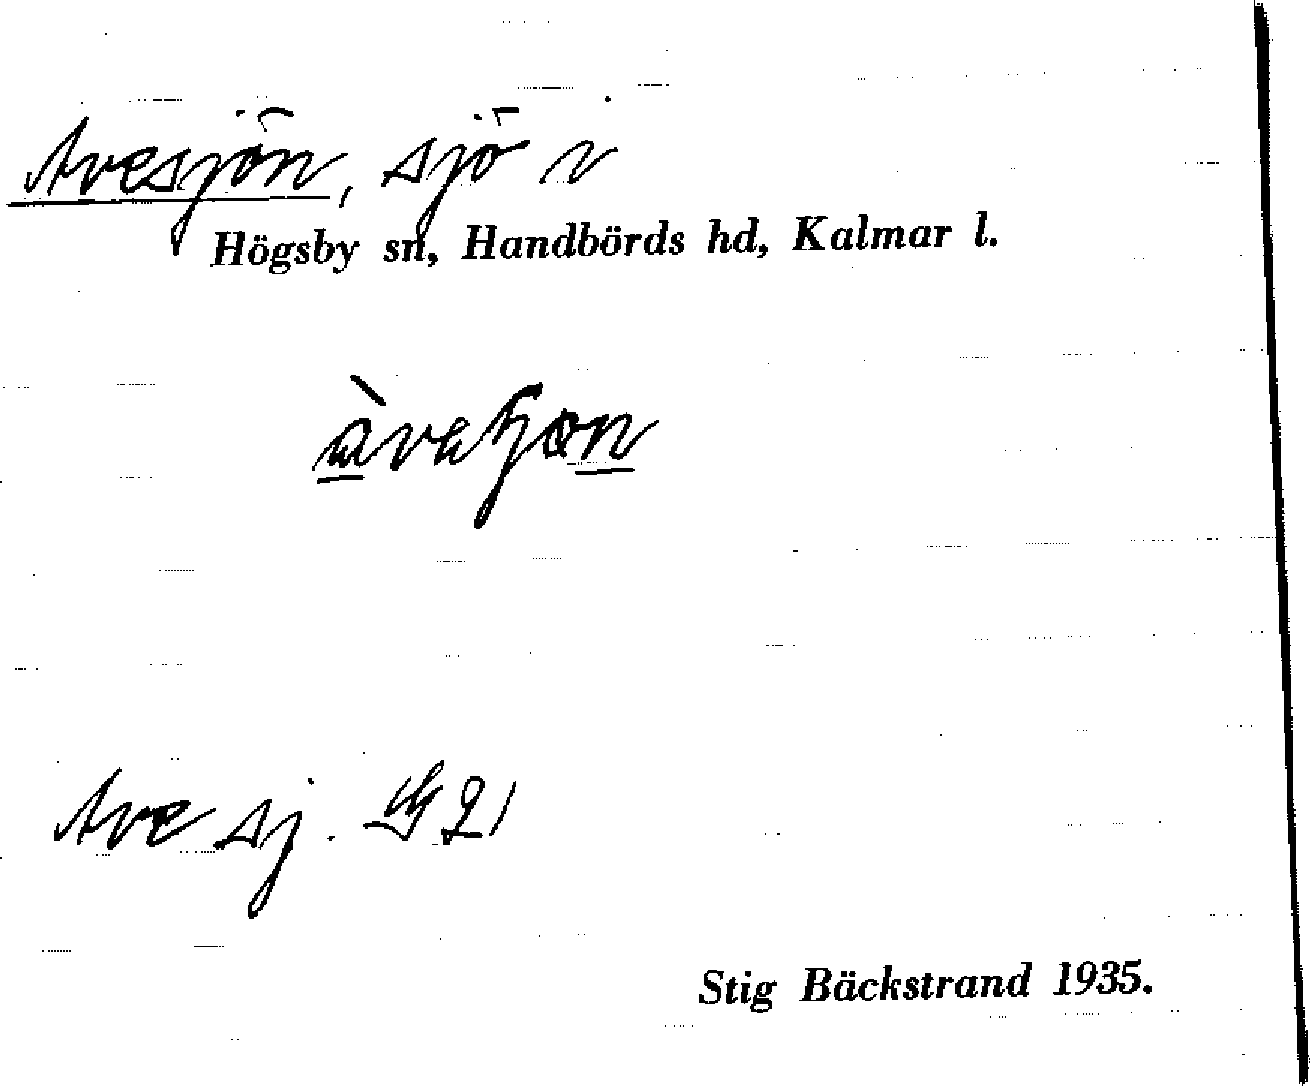 Avesjön, sjö i
Högsby sn, Handbörds hd, Kalmar l.
Ave sj.
Stig Bäckstrand 1935.